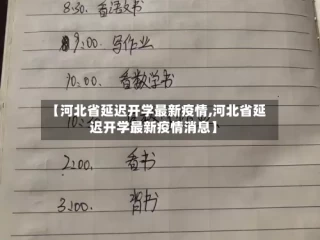 8:30. 看语文书
9:00. 写作业
10:00. 看数学书
【河北省延迟开学最新疫情,河北省延
迟开学最新疫情消息】
2:00. 看书
3:00. 背书